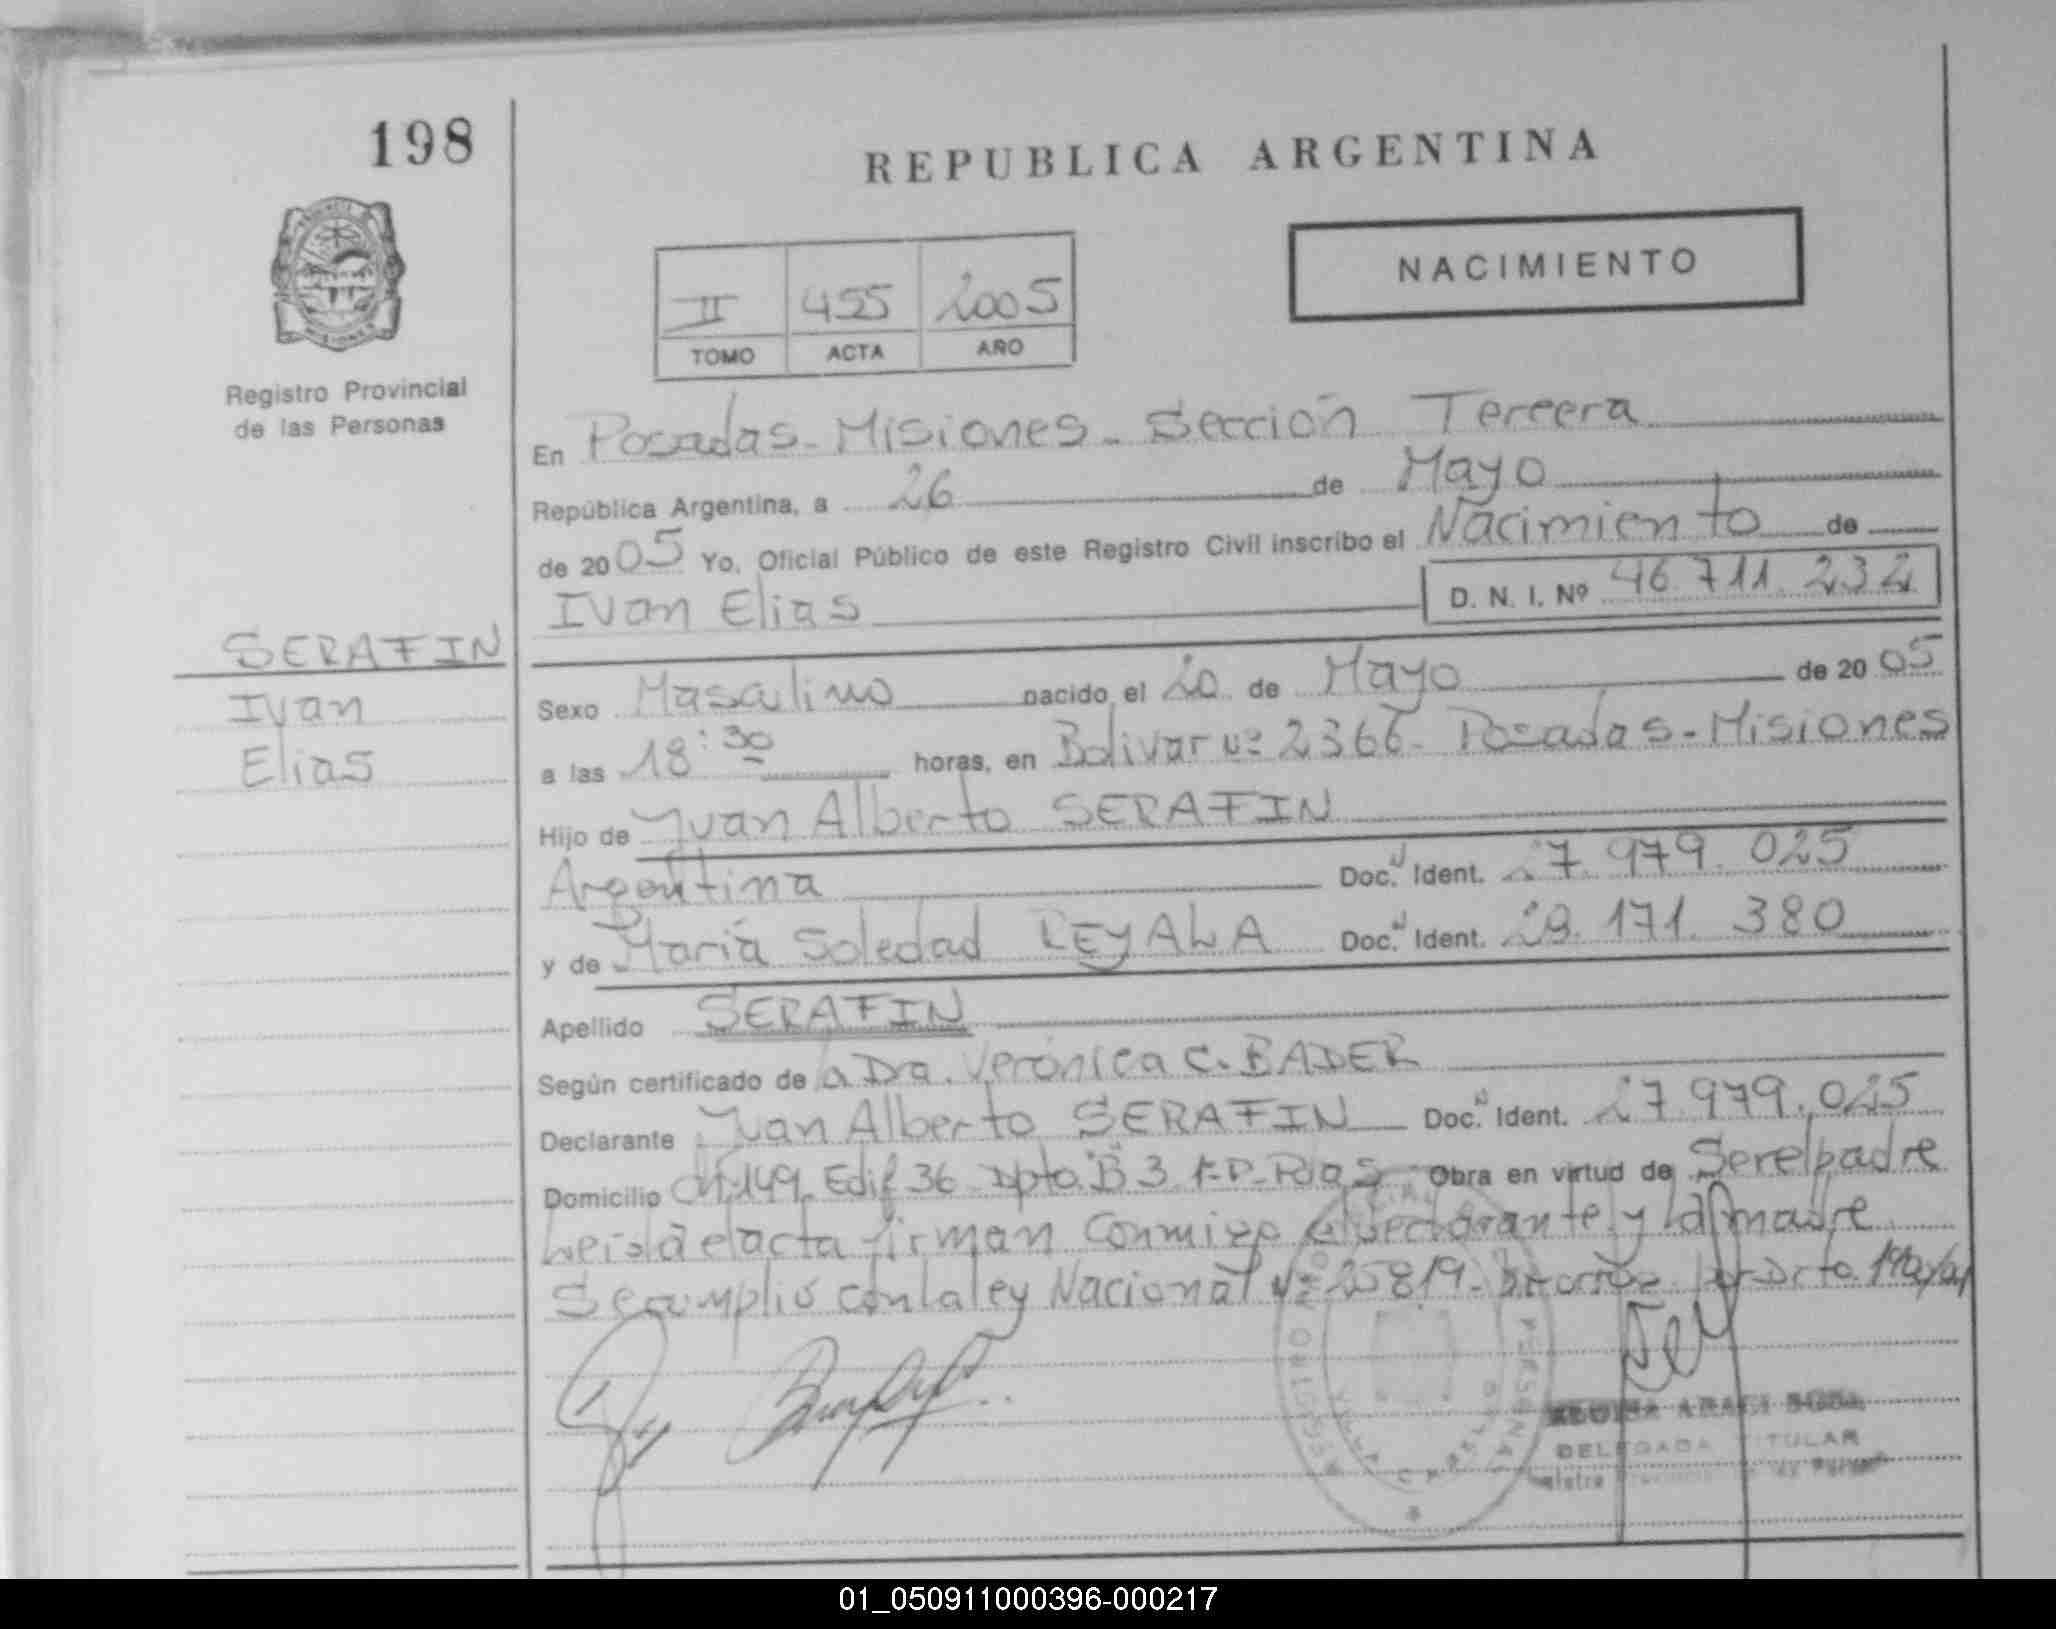 198
REPUBLICA ARGENTINA
NACIMIENTO
II 455 2005
TOMO ACTA AÑO
Registro Provincial
de las Personas
En Posadas - Misiones - Sección Tercera
República Argentina, a 26 de Mayo
de 2005 Yo, Oficial Público de este Registro Civil inscribo el Nacimiento de
Ivan Elias D. N. I. Nº 46.711.232
SERAFIN
Ivan
Elias
Sexo Masculino nacido el 20 de Mayo de 2005
a las 18:30 horas, en Bolivar Nº 2366 - Posadas - Misiones
Hijo de Juan Alberto SERAFIN
Argentina Doc. Ident. 27.979.025
y de Maria Soledad REYALA Doc. Ident. 29.171.380
Apellido SERAFIN
Según certificado de la Dra. Verónica C. BADER
Declarante Juan Alberto SERAFIN Doc. Ident. 27.979.025
Domicilio Ch 149 Edif 36 Dpto. B 3 Obra en virtud de Ser el padre
Leida el acta firman conmigo el declarante y la madre
Se cumplió con la ley Nacional Nº 25819
DELEGADA TITULAR
01_050911000396-000217